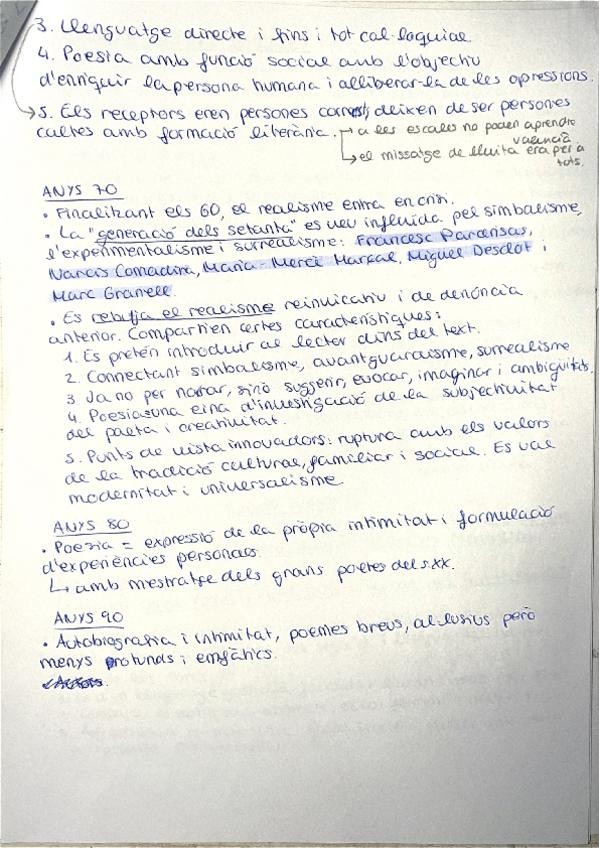 3. Llenguatge directe i fins i tot col·loquial.
4. Poesia amb funció social amb l'objectiu
d'enriquir la persona humana i alliberar-la de les opressions.
5. Els receptors eren persones corrents, deixen de ser persones
cultes amb formació literària. → a les escoles no poden aprendre
valencià
↳ el missatge de lluita era per a
tots.
ANYS 70
• Finalitzant els 60, el realisme entra en crisi.
• La "generació dels setanta" es veu influïda pel simbolisme,
l'experimentalisme i surrealisme: Francesc Parcerisas,
Narcís Comadira, Maria-Mercè Marçal, Miquel Desclot i
Marc Granell.
• Es rebutja el realisme reivindicatiu i de denúncia
anterior. Compartien certes característiques:
1. Es pretén introduir al lector dins del text.
2. Connectant simbolisme, avantguardisme, surrealisme
3. Ja no per narrar, sinó suggerir, evocar, imaginar i ambigüitats.
4. Poesia = una eina d'investigació de la subjectivitat
del poeta i creativitat.
5. Punts de vista innovadors: ruptura amb els valors
de la tradició cultural, familiar i social. Es vol
modernitat i universalisme.
ANYS 80
• Poesia = expressió de la pròpia intimitat i formulació
d'experiències personals.
↳ amb mestratge dels grans poetes del s.XX.
ANYS 90
• Autobiografia i intimitat, poemes breus, al·lusius però
menys profunds i emfàtics.